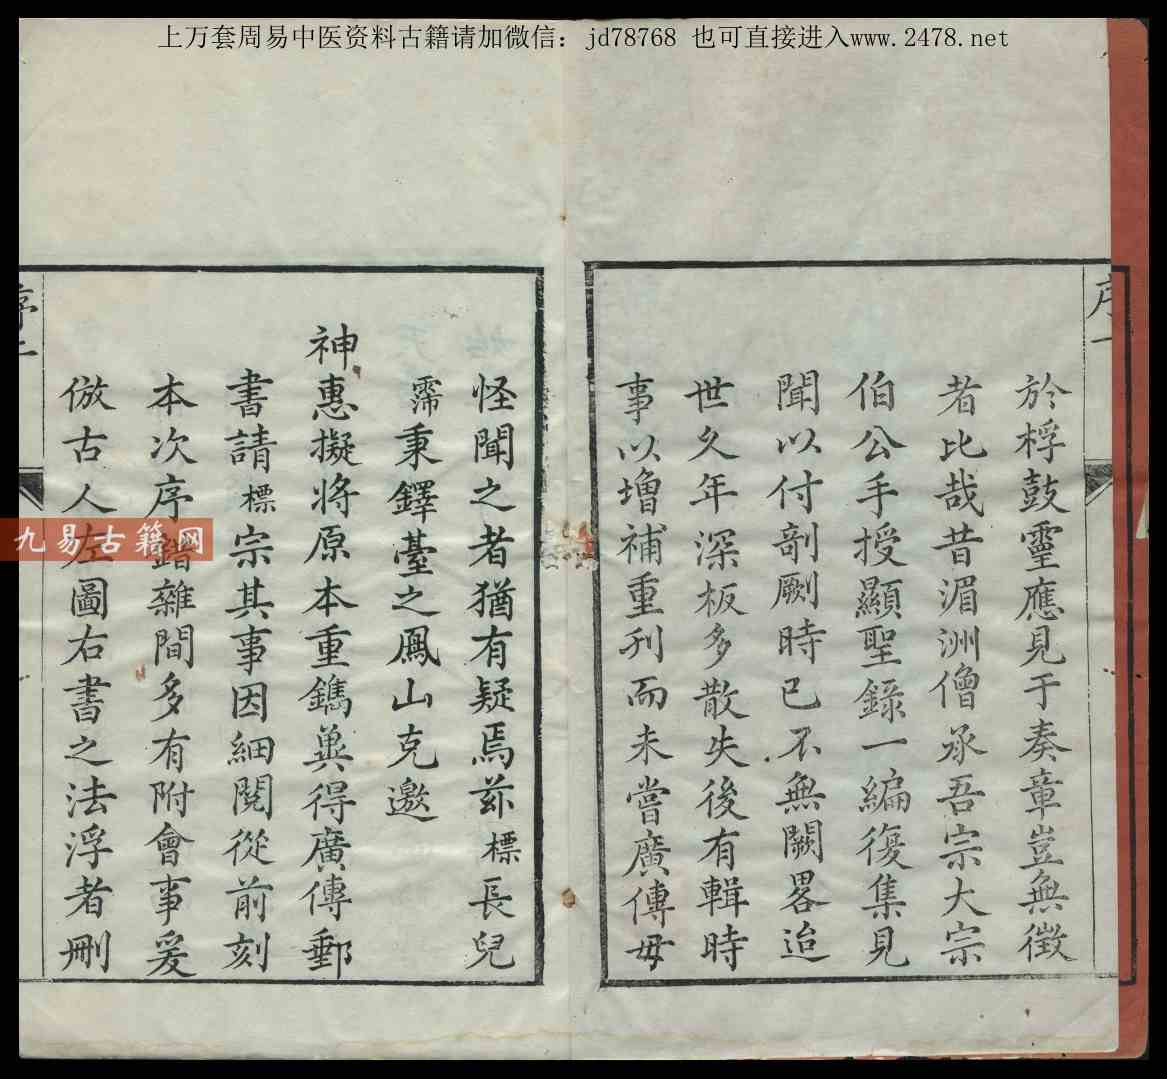 上万套周易中医资料古籍请加微信：jd78768 也可直接进入www.2478.net
序一
於桴鼓靈應見于奏章豈無徴
者比哉昔湄洲僧承吾宗大宗
伯公手授顯聖錄一編復集見
聞以付剞劂時已不無闕畧迨
世久年深板多散失後有輯時
事以増補重刊而未嘗廣傳毋
怪聞之者猶有疑焉茲標長兒
霈秉鐸臺之鳳山克邀
神惠擬將原本重鐫兾得廣傳郵
書請標宗其事因細閱從前刻
本次序錯雜間多有附會事爰
倣古人左圖右書之法浮者刪
序二
九易古籍网